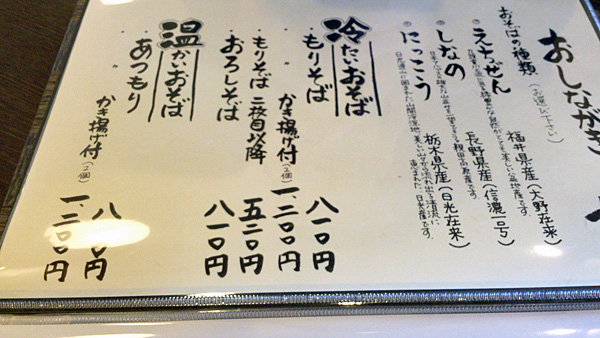 おしながき
おそばの種類（お選び下さい）
・えちぜん 福井県産（大野在来）
・しなの 長野県産（信濃一号）
・にっこう 栃木県産（日光在来）
冷たいおそば
・もりそば 八一〇円
かき揚げ付（2個） 一、二〇〇円
・もりそば 二枚目以降 五二〇円
・おろしそば 八一〇円
温かいおそば
・あつもり 八一〇円
かき揚げ付（2個） 一、二〇〇円